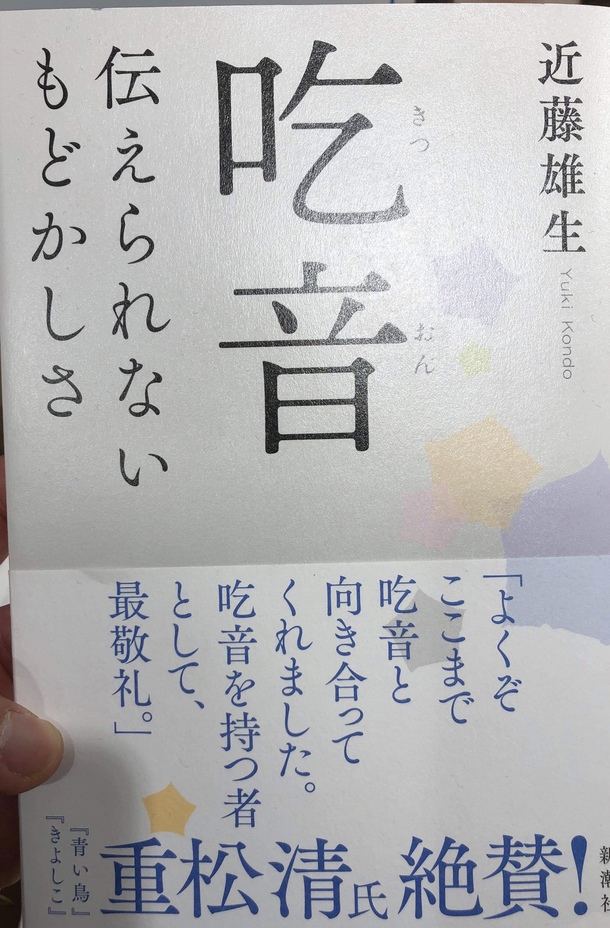 近藤雄生
Yuki Kondo
吃音
きつ おん
伝えられない
もどかしさ
「よくぞ
ここまで
吃音と
向き合って
くれました。
吃音を持つ者
として、
最敬礼。」
『青い鳥』
『きよしこ』
重松清氏絶賛!
新潮社